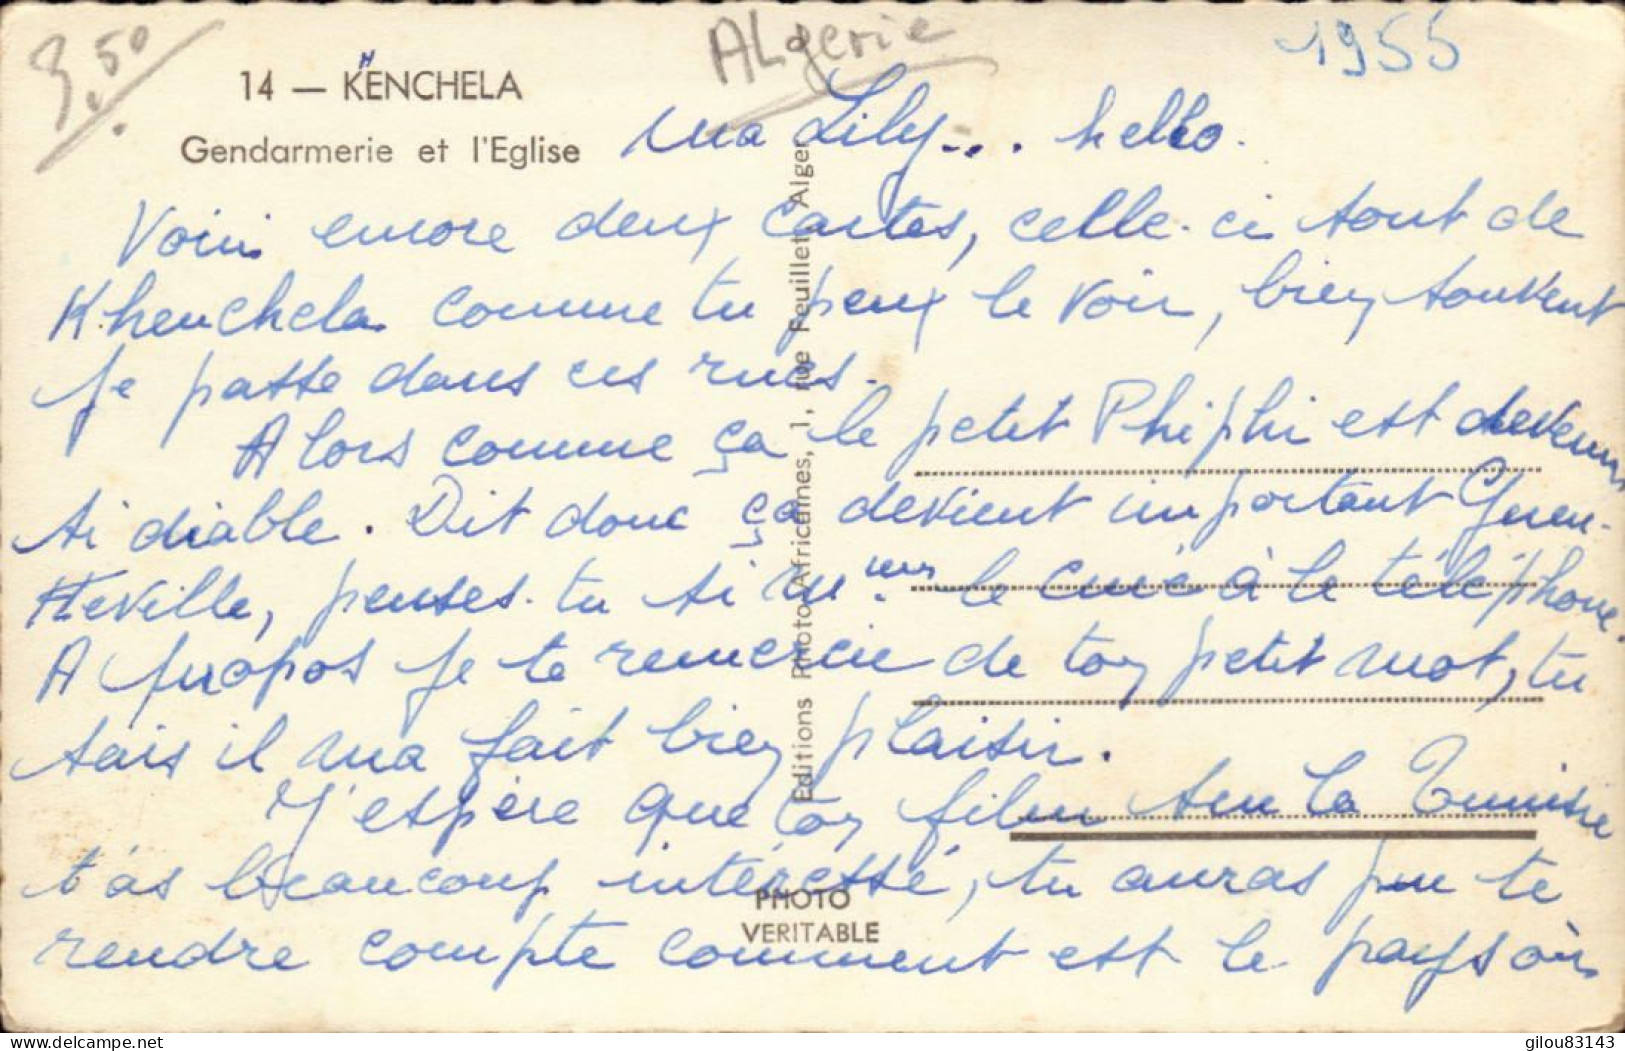 3.50
Algerie
1955
14 — KENCHELA
H
Gendarmerie et l'Eglise
ma Lily... hello.
Voici encore deux cartes, celle-ci sont de
Khenchela comme tu peux le voir, bien souvent
je passe dans ces rues.
Alors comme ça le petit Phiphi est devenu
si diable. Dit donc ça devient important Guen-
Heville, penses-tu si le curé à le téléphone.
A propos je te remercie de ton petit mot, tu
sais il m'a fait bien plaisir.
J'espère que ton film sur la Tunisie
t'as beaucoup intéressé, tu auras pu te
rendre compte comment est le pays où
Editions Photo-Africaines, 1, rue Feuillet, Alger
PHOTO
VERITABLE
delcampe.net
gilou83143